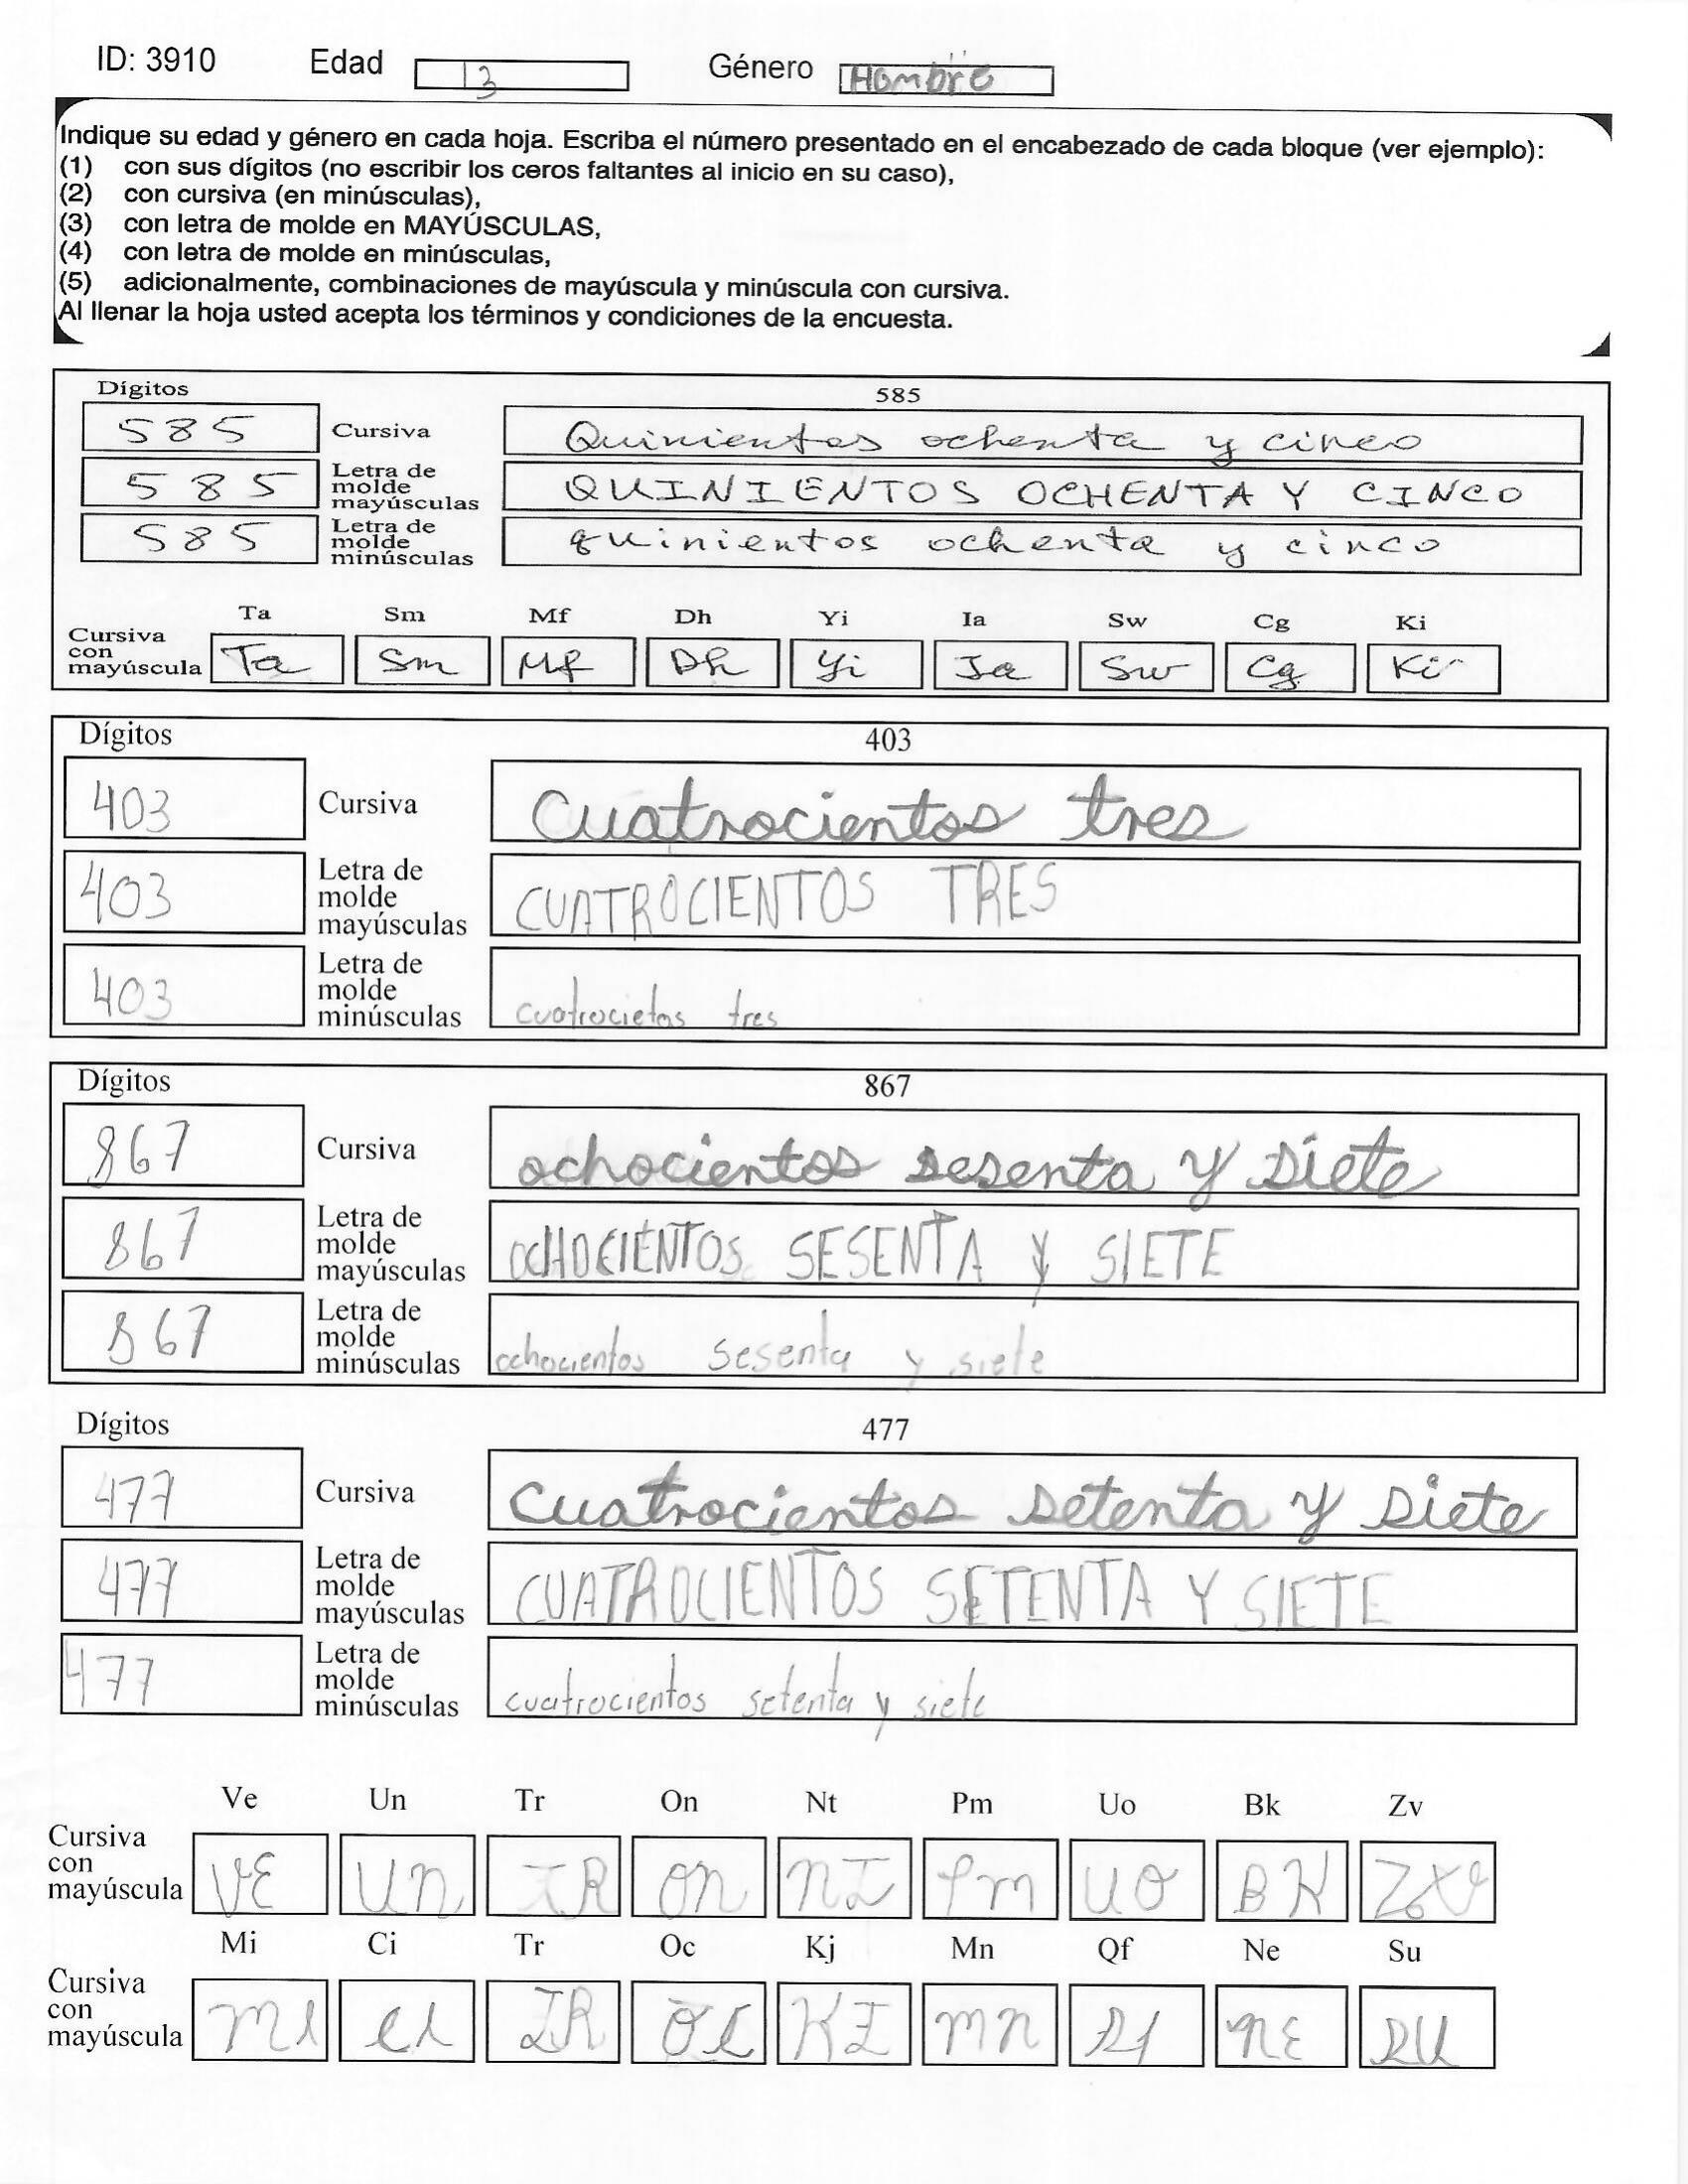 ID: 3910 Edad 13 Género Hombre
Indique su edad y género en cada hoja. Escriba el número presentado en el encabezado de cada bloque (ver ejemplo):
(1) con sus dígitos (no escribir los ceros faltantes al inicio en su caso),
(2) con cursiva (en minúsculas),
(3) con letra de molde en MAYÚSCULAS,
(4) con letra de molde en minúsculas,
(5) adicionalmente, combinaciones de mayúscula y minúscula con cursiva.
Al llenar la hoja usted acepta los términos y condiciones de la encuesta.
Dígitos 585
585 Cursiva Quinientos ochenta y cinco
585 Letra de molde mayúsculas QUINIENTOS OCHENTA Y CINCO
585 Letra de molde minúsculas quinientos ochenta y cinco
Ta Sm Mf Dh Yi Ia Sw Cg Ki
Cursiva con mayúscula Ta Sm Mf Dh Yi Ia Sw Cg Ki
Dígitos 403
403 Cursiva Cuatrocientos tres
403 Letra de molde mayúsculas CUATROCIENTOS TRES
403 Letra de molde minúsculas cuatrocietos tres
Dígitos 867
867 Cursiva ochocientos sesenta y siete
867 Letra de molde mayúsculas OCHOCIENTOS SESENTA Y SIETE
867 Letra de molde minúsculas ochocientos sesenta y siete
Dígitos 477
477 Cursiva Cuatrocientos setenta y siete
477 Letra de molde mayúsculas CUATROCIENTOS SETENTA Y SIETE
477 Letra de molde minúsculas cuatrocientos setenta y siete
Ve Un Tr On Nt Pm Uo Bk Zv
Cursiva con mayúscula VE Un TR On nT Pm UO BK
Mi Ci Tr Oc Kj Mn Qf Ne Su
Cursiva con mayúscula mi ci TR OC mn nE SU